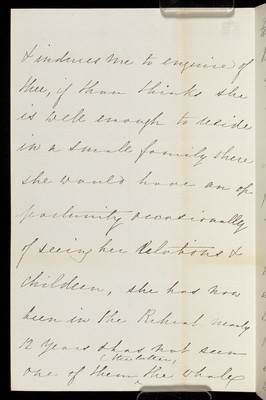 & induces me to enquire of
thee, if thou thinks she
is well enough to reside
in a small family where
she would have an op
portunity occasionally
of seeing her Relations &
children, she has now
been in the Retreat nearly
12 Years & has not seen
(the latter,
one of them ^ the whole